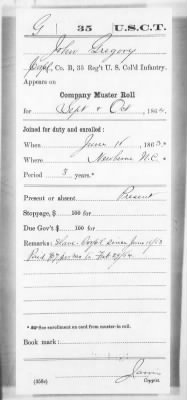 G | 35 | U.S.C.T.
John Gregory
Corpl, Co. B, 35 Reg't U. S. Col'd Infantry.
Appears on
Company Muster Roll
for Sept & Oct, 1864
Joined for duty and enrolled:
When June 15, 1863.
Where Newberne N.C.
Period 3 years.*
Present or absent Present
Stoppage, $ 100 for
Due Gov't $ 100 for
Remarks: Slave. Corpl since June 15/63
Paid $7 per mo. to Feb 29/64
* See enrollment on card from muster-in roll.
Book mark:
(358c)
Copyist.